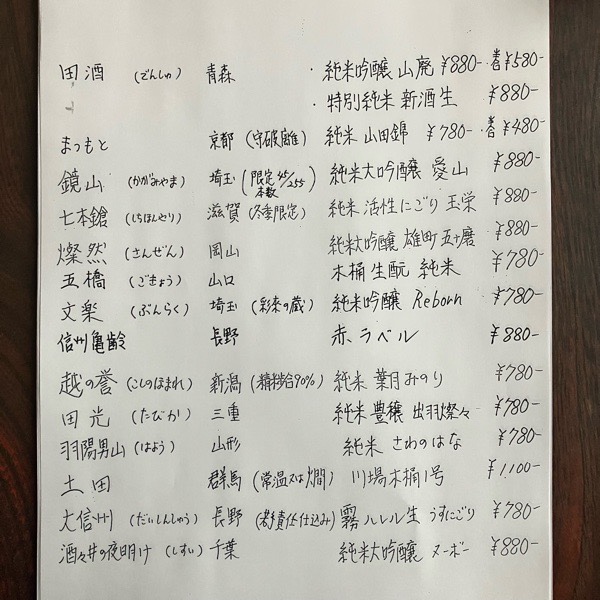 田酒 (でんしゅ) 青森 ・純米吟醸 山廃 ¥880- 壱¥580-
・特別純米 新酒生 ¥880-
まつもと 京都 (守破離) 純米 山田錦 ¥780- 壱¥480-
鏡山 (かがみやま) 埼玉 (限定本数 45/255) 純米大吟醸 愛山 ¥880-
七本鎗 (しちほんやり) 滋賀 (冬季限定) 純米 活性にごり 玉栄 ¥880-
燦然 (さんぜん) 岡山 純米大吟醸 雄町 五十磨 ¥880-
五橋 (ごきょう) 山口 木桶 生酛 純米 ¥780-
文楽 (ぶんらく) 埼玉 (彩来の蔵) 純米吟醸 Reborn ¥780-
信州亀齢 長野 赤ラベル ¥880-
越の誉 (こしのほまれ) 新潟 (精米歩合90%) 純米 葉月みのり ¥780-
田光 (たびか) 三重 純米 豊穣 出羽燦々 ¥780-
羽陽男山 (はよう) 山形 純米 さわのはな ¥780-
土田 群馬 (常温又は燗) 川場木桶1号 ¥1,100-
大信州 (だいしんしゅう) 長野 (杜氏責任仕込み) 霧ハレル生 うすにごり ¥780-
酒々井の夜明け (しすい) 千葉 純米大吟醸 ヌーボー ¥880-